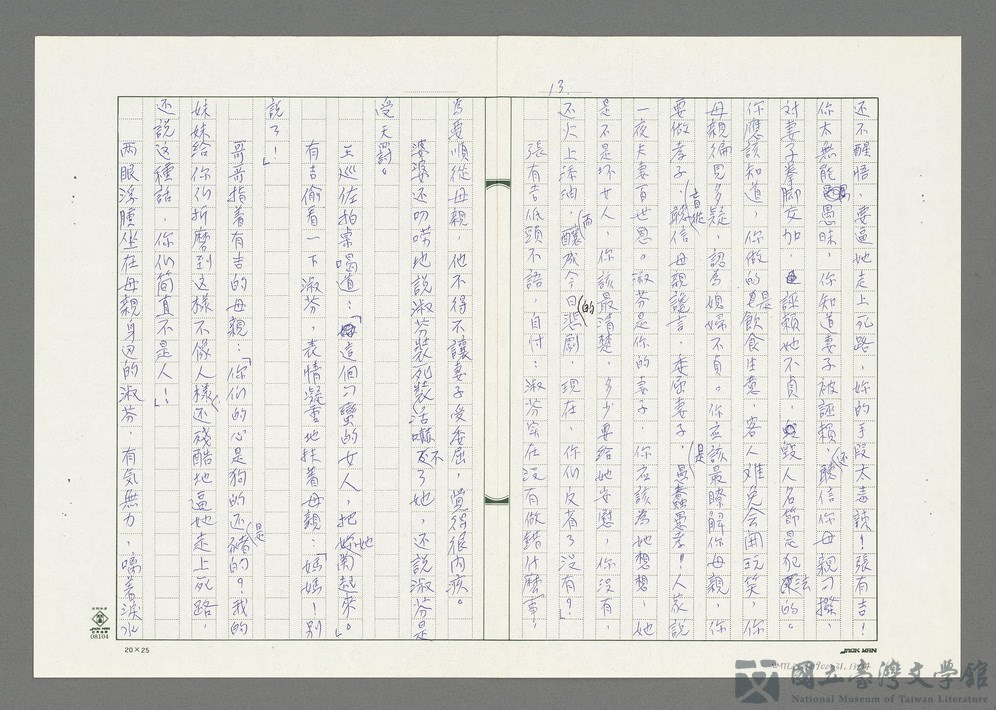 13.
还不醒悟，要逼她走上死路，妳的手段太毒辣！張有吉！
你太無能，愚昧，你知道妻子被誣賴，还聽信你母親刁撥，
对妻子拳脚交加，誣賴她不貞，毀人名節是犯法的。
你應該知道，你做的是飲食生意，客人难免会開玩笑，你
母親徧見多疑，認為媳婦不貞。你应該最瞭解你母親，你
要做孝子，盲從聽信母親謊言，委屈妻子，是愚蠢愚孝！人家說
一夜夫妻百世恩。淑芬是你的妻子，你应該為她想想，她
是不是坏女人，你該最清楚，多少要给她安慰，你沒有，
还火上添油，而釀成今日的悲劇，現在，你們反省了沒有？」
張有吉低頭不語，自忖：淑芬实在沒有做錯什麼事！
為要順從母親，他不得不讓妻子受委屈，覺得很內疚。
婆婆还叨嘮地說淑芬裝死裝活嚇不了她，还說淑芬是
受天罰。
王巡佐拍桌喝道：「這個刁蠻的女人，把她関起來。」
有吉偷看一下淑芬，表情凝重地扶着母親：「媽媽！别
說了！」
哥哥指着有吉的母親：「你們的心是狗的还是豬的？我的
妹妹给你們折磨到这樣不像人樣还殘酷地逼她走上死路，
还說这種話，你們简直不是人！」
两眼浮腫坐在母親身边的淑芬，有気無力，噙着淚水
20×25
JACK MAN
08104
國立臺灣文学館
National Museum of Taiwan Literature